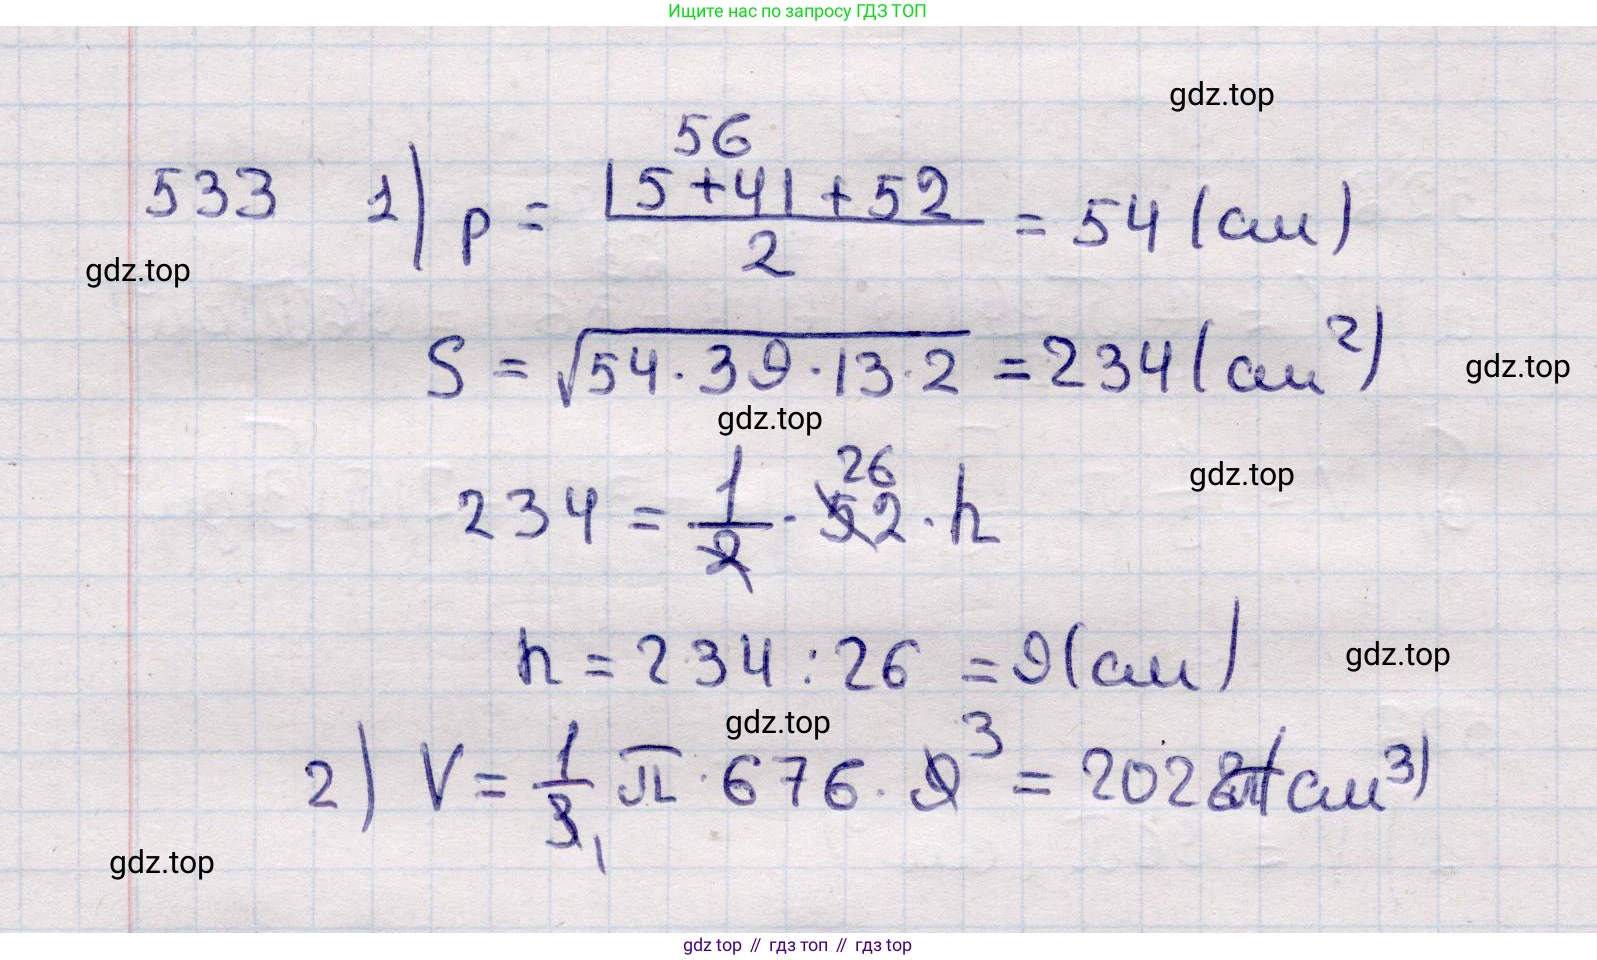 Ищите нас по запросу ГДЗ ТОП
gdz.top
56
533 1) p = 15+41+52 / 2 = 54 (см)
gdz.top
S = √54·39·13·2 = 234 (см²)
gdz.top
gdz.top
26
234 = 1/2 · 52 · h
gdz.top
h = 234 : 26 = 9 (см)
gdz.top
gdz.top
2) V = 1/3 1 π · 676 · 9 3 = 2028π (см³)
gdz.top
gdz top // гдз топ // gdz top